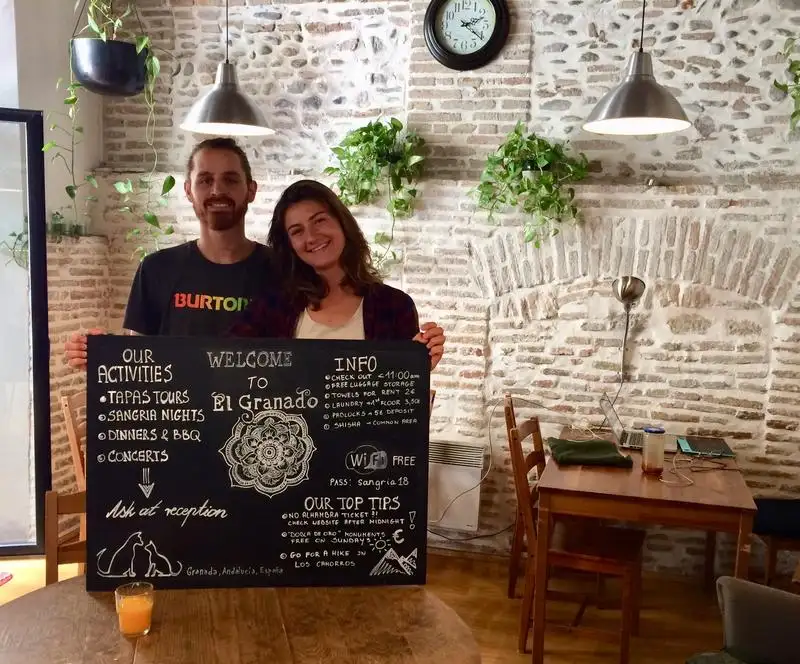 BURTON
OUR
ACTIVITIES
TAPAS TOURS
SANGRIA NIGHTS
DINNERS & BBQ
CONCERTS
Ask at reception
WELCOME
TO
El Granado
INFO
CHECK OUT < 11:00am
FREE LUGGAGE STORAGE
TOWELS FOR RENT 2€
LAUNDRY →1st FLOOR 3,50€
PADLOCKS → 5€ DEPOSIT
SHISHA → COMMON AREA
WiFi FREE
PASS: sangria18
OUR TOP TIPS
NO ALHAMBRA TICKET?!
CHECK WEBSITE AFTER MIDNIGHT!
"DOBLA DE ORO" MONUMENTS
FREE ON SUNDAYS €
GO FOR A HIKE IN
LOS CAHORROS
Granada, Andalucía, España